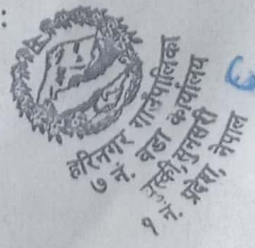 हरिनगर गाउँपालिका
७ नं. वडा कार्यालय
सुनसरी
१ नं. प्रदेश, नेपाल